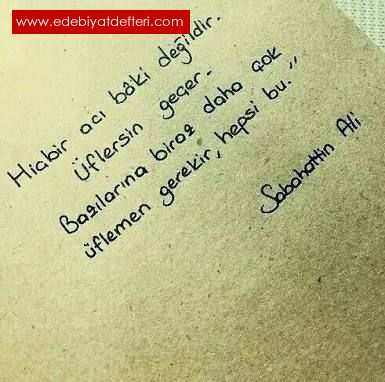 www.edebiyatdefteri.com
Hiçbir acı bâki değildir.
Üflersin geçer.
Bazılarına biraz daha çok
üflemen gerekir, hepsi bu."
Sabahattin Ali